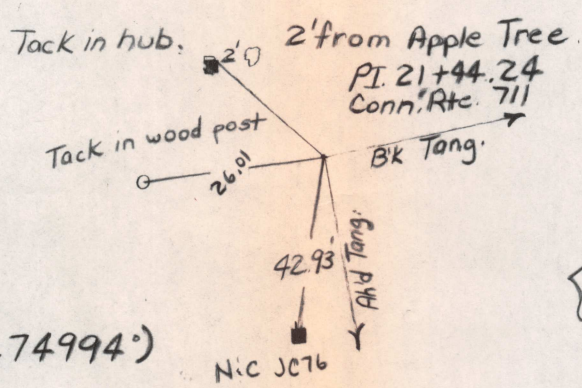 Tack in hub.
2'
2' from Apple Tree
PI. 21+44.24
Conn. Rte. 711
Tack in wood post
B'k Tang.
26.01
42.93'
Ah'd Tang.
.74994°)
N:C JC76